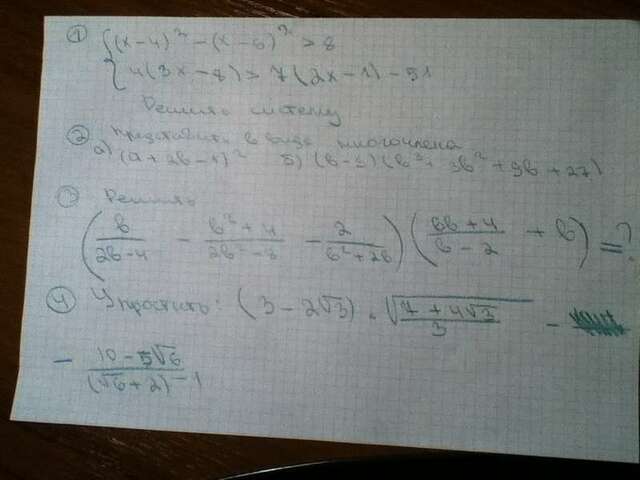 ① { (x-4)² - (x-6)² > 8
4(3x-8) > 7(2x-1) - 51
Решить систему
② представить в виде многочлена
а) (a+2b-1)² б) (b-3)(b³+3b²+9b+27)
③ Решить
(b/(2b-4) - (b²+4)/(2b²-8) - 2/(b²+2b)) ((5b+4)/(b-2) + b) = ?
④ Упростить: (3-2√3) · √((7+4√3)/3) -
- (10-5√6)/((√6+2)-1)